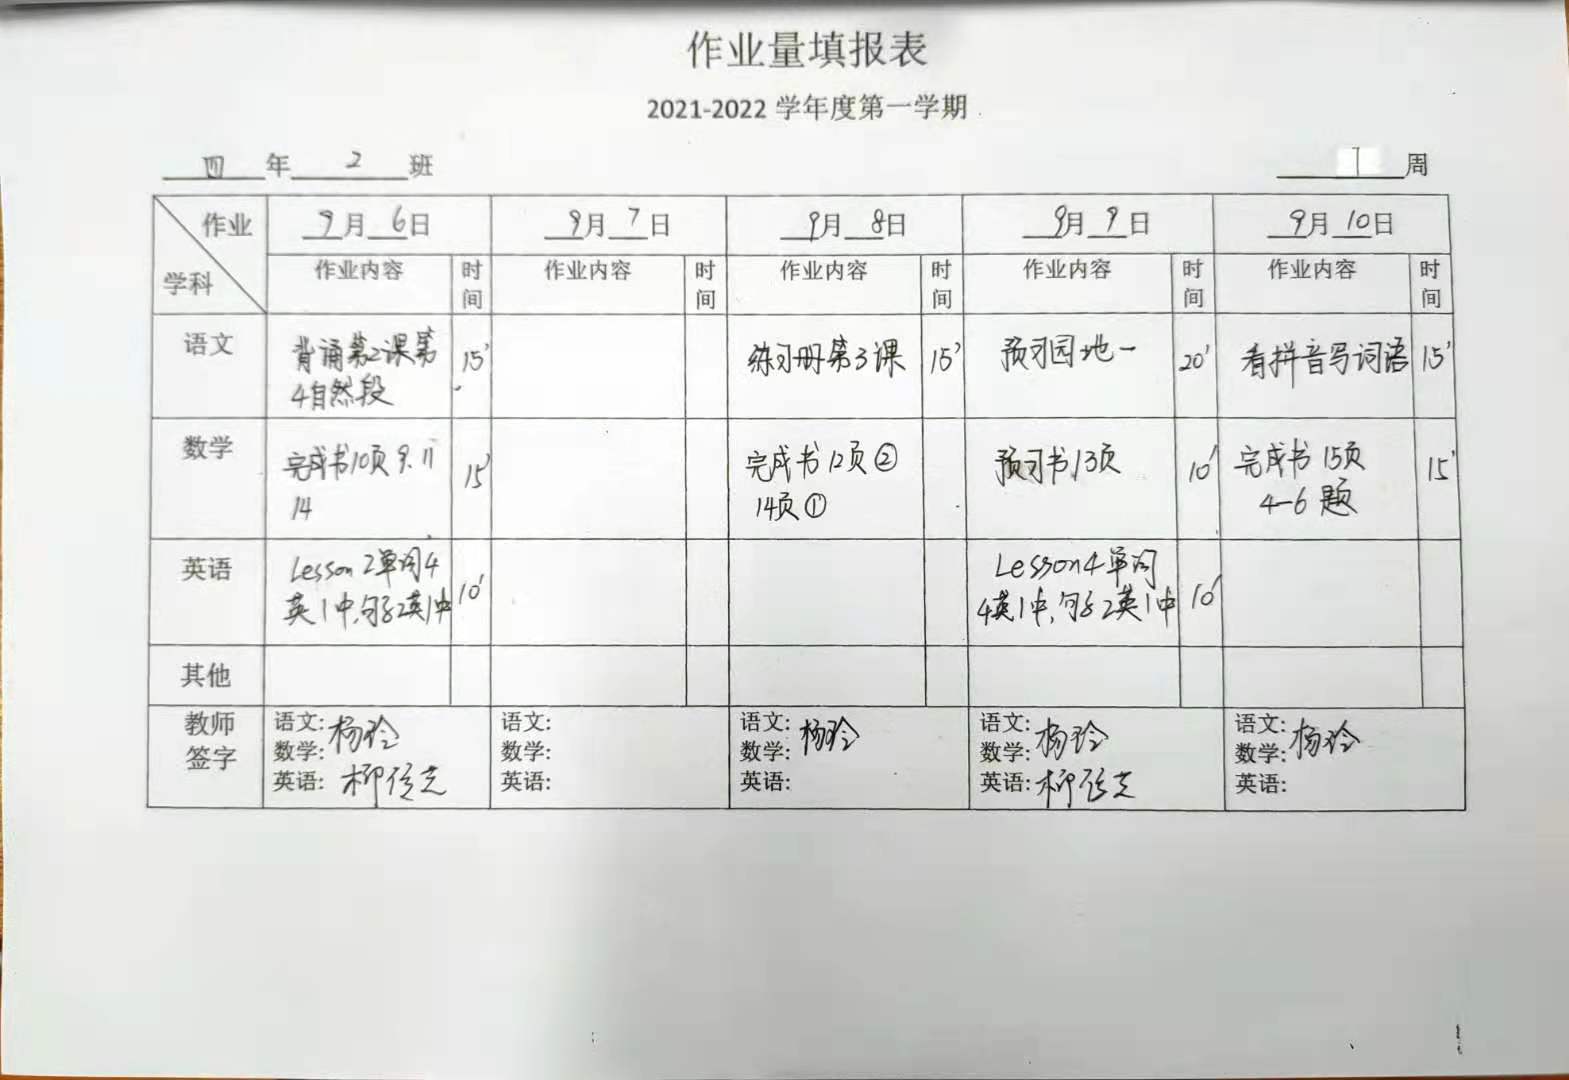 作业量填报表
2021-2022 学年度第一学期
四 年 2 班
1 周
作业 9月 6日 9月 7日 9月 8日 9月 9日 9月 10日
学科 作业内容 时间 作业内容 时间 作业内容 时间 作业内容 时间 作业内容 时间
语文 背诵第2课第 15' 练习册第3课 15' 预习园地一 20' 看拼音写词语 15'
4自然段
数学 完成书10页 9. 11 15' 完成书12页② 预习书13页 10' 完成书 15页 15'
14 14页① 4-6 题
英语 Lesson 2单词4 10' Lesson4单词 10'
英1中,句子2英1中 4英1中,句子2英1中
其他
教师 语文: 杨玲 语文: 语文: 杨玲 语文: 杨玲 语文: 杨玲
签字 数学: 数学: 数学: 数学: 数学:
英语: 英语: 英语: 英语: 英语: